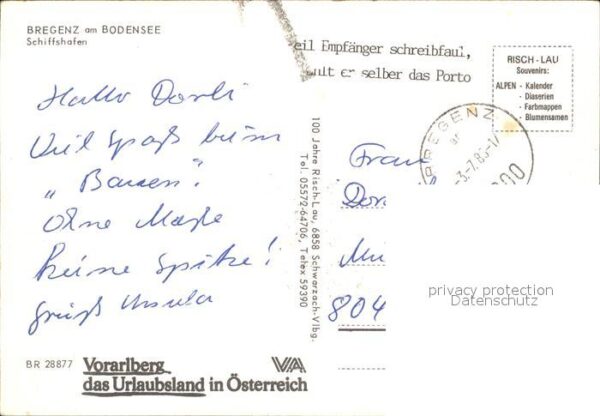 BREGENZ am BODENSEE
Schiffshafen
eil Empfänger schreibfaul,
er selber das Porto
RISCH-LAU
Souvenirs:
ALPEN - Kalender
- Diaserien
- Farbmappen
- Blumensamen
BREGENZ
3.7.86-17
Hallo Dorli
Viel Spaß beim
"Bauen".
Ohne Maße
keine Spitze!
Gruß Ursula
100 Jahre Risch-Lau, 6858 Schwarzach-Vlbg.
Tel. 05572-64706, Telex 59390
Frau
Dor
Mü
804
privacy protection
Datenschutz
BR 28877
Vorarlberg
das Urlaubsland in Österreich